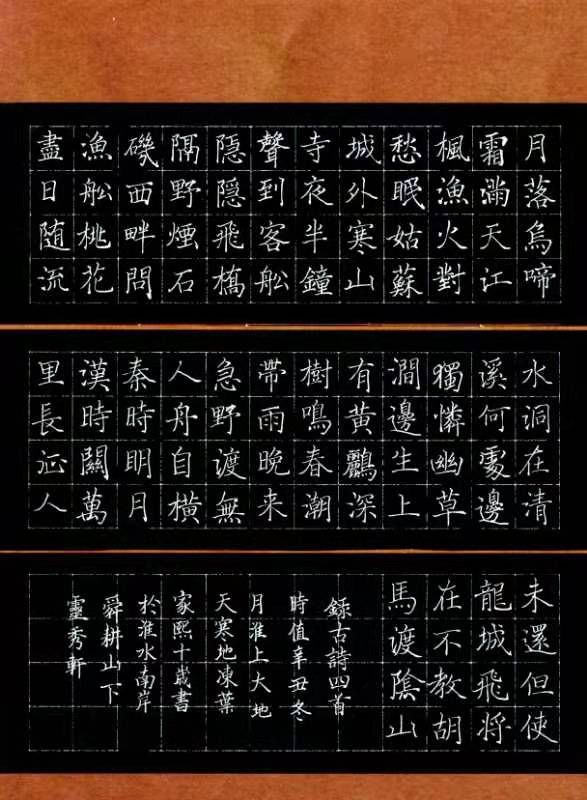 月落烏啼
霜滿天江
楓漁火對
愁眠姑蘇
城外寒山
寺夜半鐘
聲到客舩
隱隱飛橋
隔野煙石
磯西畔問
漁舩桃花
盡日随流
水洞在清
溪何處邊
獨憐幽草
澗邊生上
有黄鸝深
樹鳴春潮
帶雨晚来
急野渡無
人舟自横
秦時明月
漢時關萬
里長征人
未還但使
龍城飛将
在不教胡
馬渡陰山
録古詩四首
時值辛丑冬
月淮上大地
天寒地凍葉
家熙十歲書
於淮水南岸
舜耕山下
靈秀軒